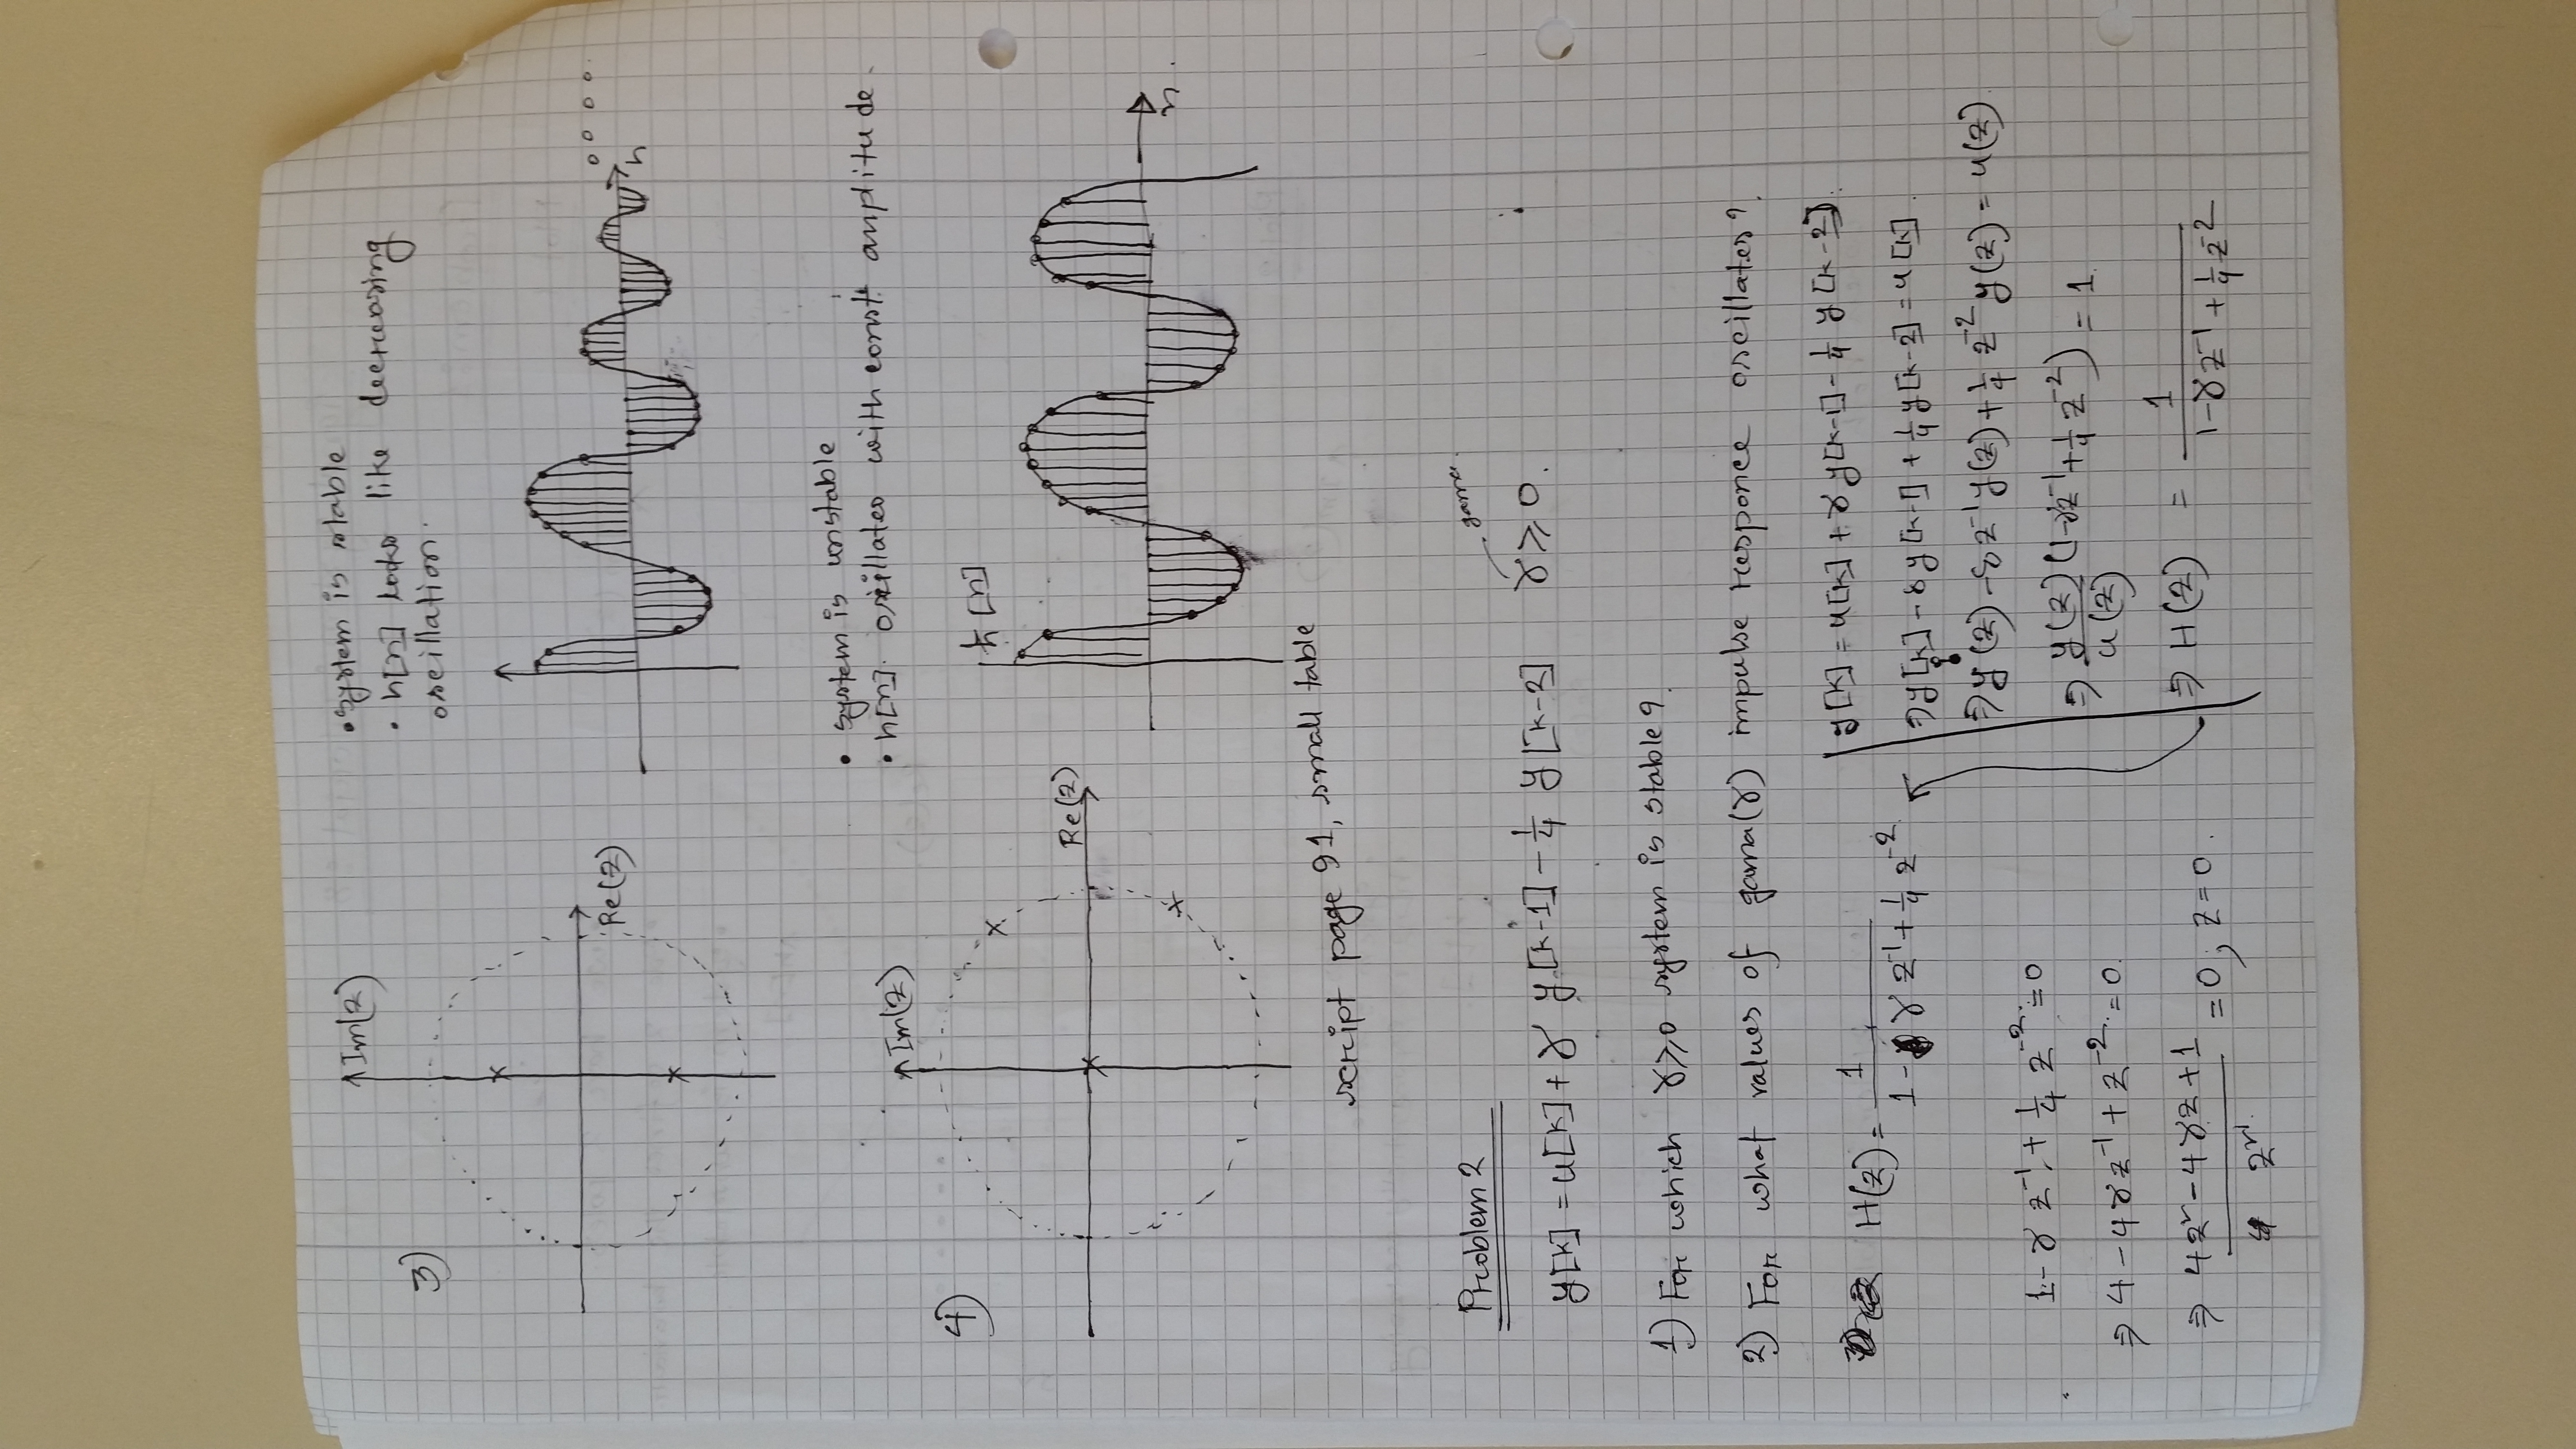 3)
Im(z)
Re(z)
• system is stable
• h[n] looks like decreasing
oscillation.
n
• system is unstable
• h[n]. oscillates with const amplitude.
4)
Im(z)
Re(z)
h[n]
n.
script page 91, small table
Problem 2
gama.
y[k] = u[k] + γ y[k-1] - 1/4 y[k-2] γ ≥ 0.
1) For which γ≥0 system is stable?
2) For what values of gama(γ) impulse responce oscillates?
H(z) = 1 / (1 - γ z⁻¹ + 1/4 z⁻²)
1 - γ z⁻¹ + 1/4 z⁻² = 0
⇒ 4 - 4γz⁻¹ + z⁻² = 0
⇒ (4z² - 4γz + 1) / z² = 0; z = 0.
y[k] = u[k] + γ y[k-1] - 1/4 y[k-2].
⇒ y[k] - γ y[k-1] + 1/4 y[k-2] = u[k].
⇒ y(z) - γ z⁻¹ y(z) + 1/4 z⁻² y(z) = u(z)
⇒ y(z)/u(z) (1 - γz⁻¹ + 1/4 z⁻²) = 1
⇒ H(z) = 1 / (1 - γ z⁻¹ + 1/4 z⁻²)